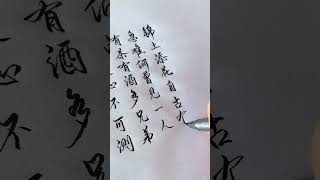 锦上添花自古
急难何曾见一人
有茶有酒多兄弟
心不可测